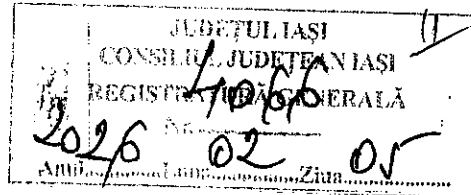 JUDEȚUL IAȘI
CONSILIUL JUDEȚEAN IAȘI
REGISTRATURĂ GENERALĂ
Nr. 4066
Anul 2026 Luna 02 Ziua 05